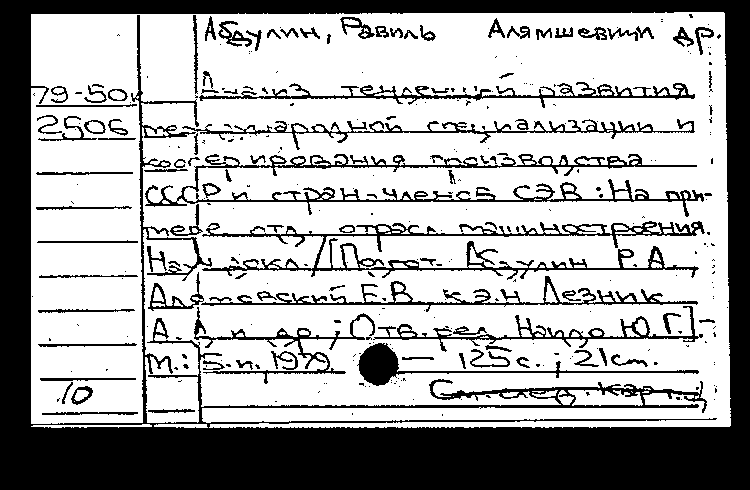 Абдулин, Равиль Алямшевич и др.
79-50к Анализ тенденций развития
2506 международной специализации и
кооперирования производства
СССР и стран-членов СЭВ : На при-
мере отд. отрасл. машиностроения.
Науч. докл. / [Подгот. Абдулин Р.А.,
Е.В., к.э.н. Лезник
А. Д. и др.; Отв. ред. Ю.Г.]. –
М.: Б.и., 1979. — 125 с.; 21 см.
10 См. след. карт.